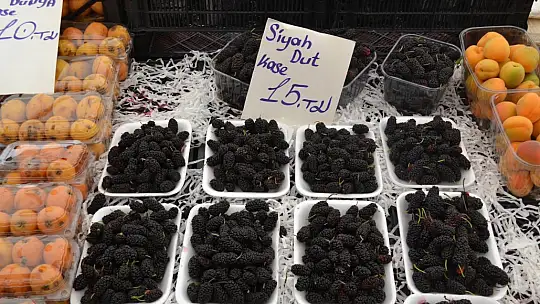 Kase
10.TL
Siyah
Dut
Kase
15.TL